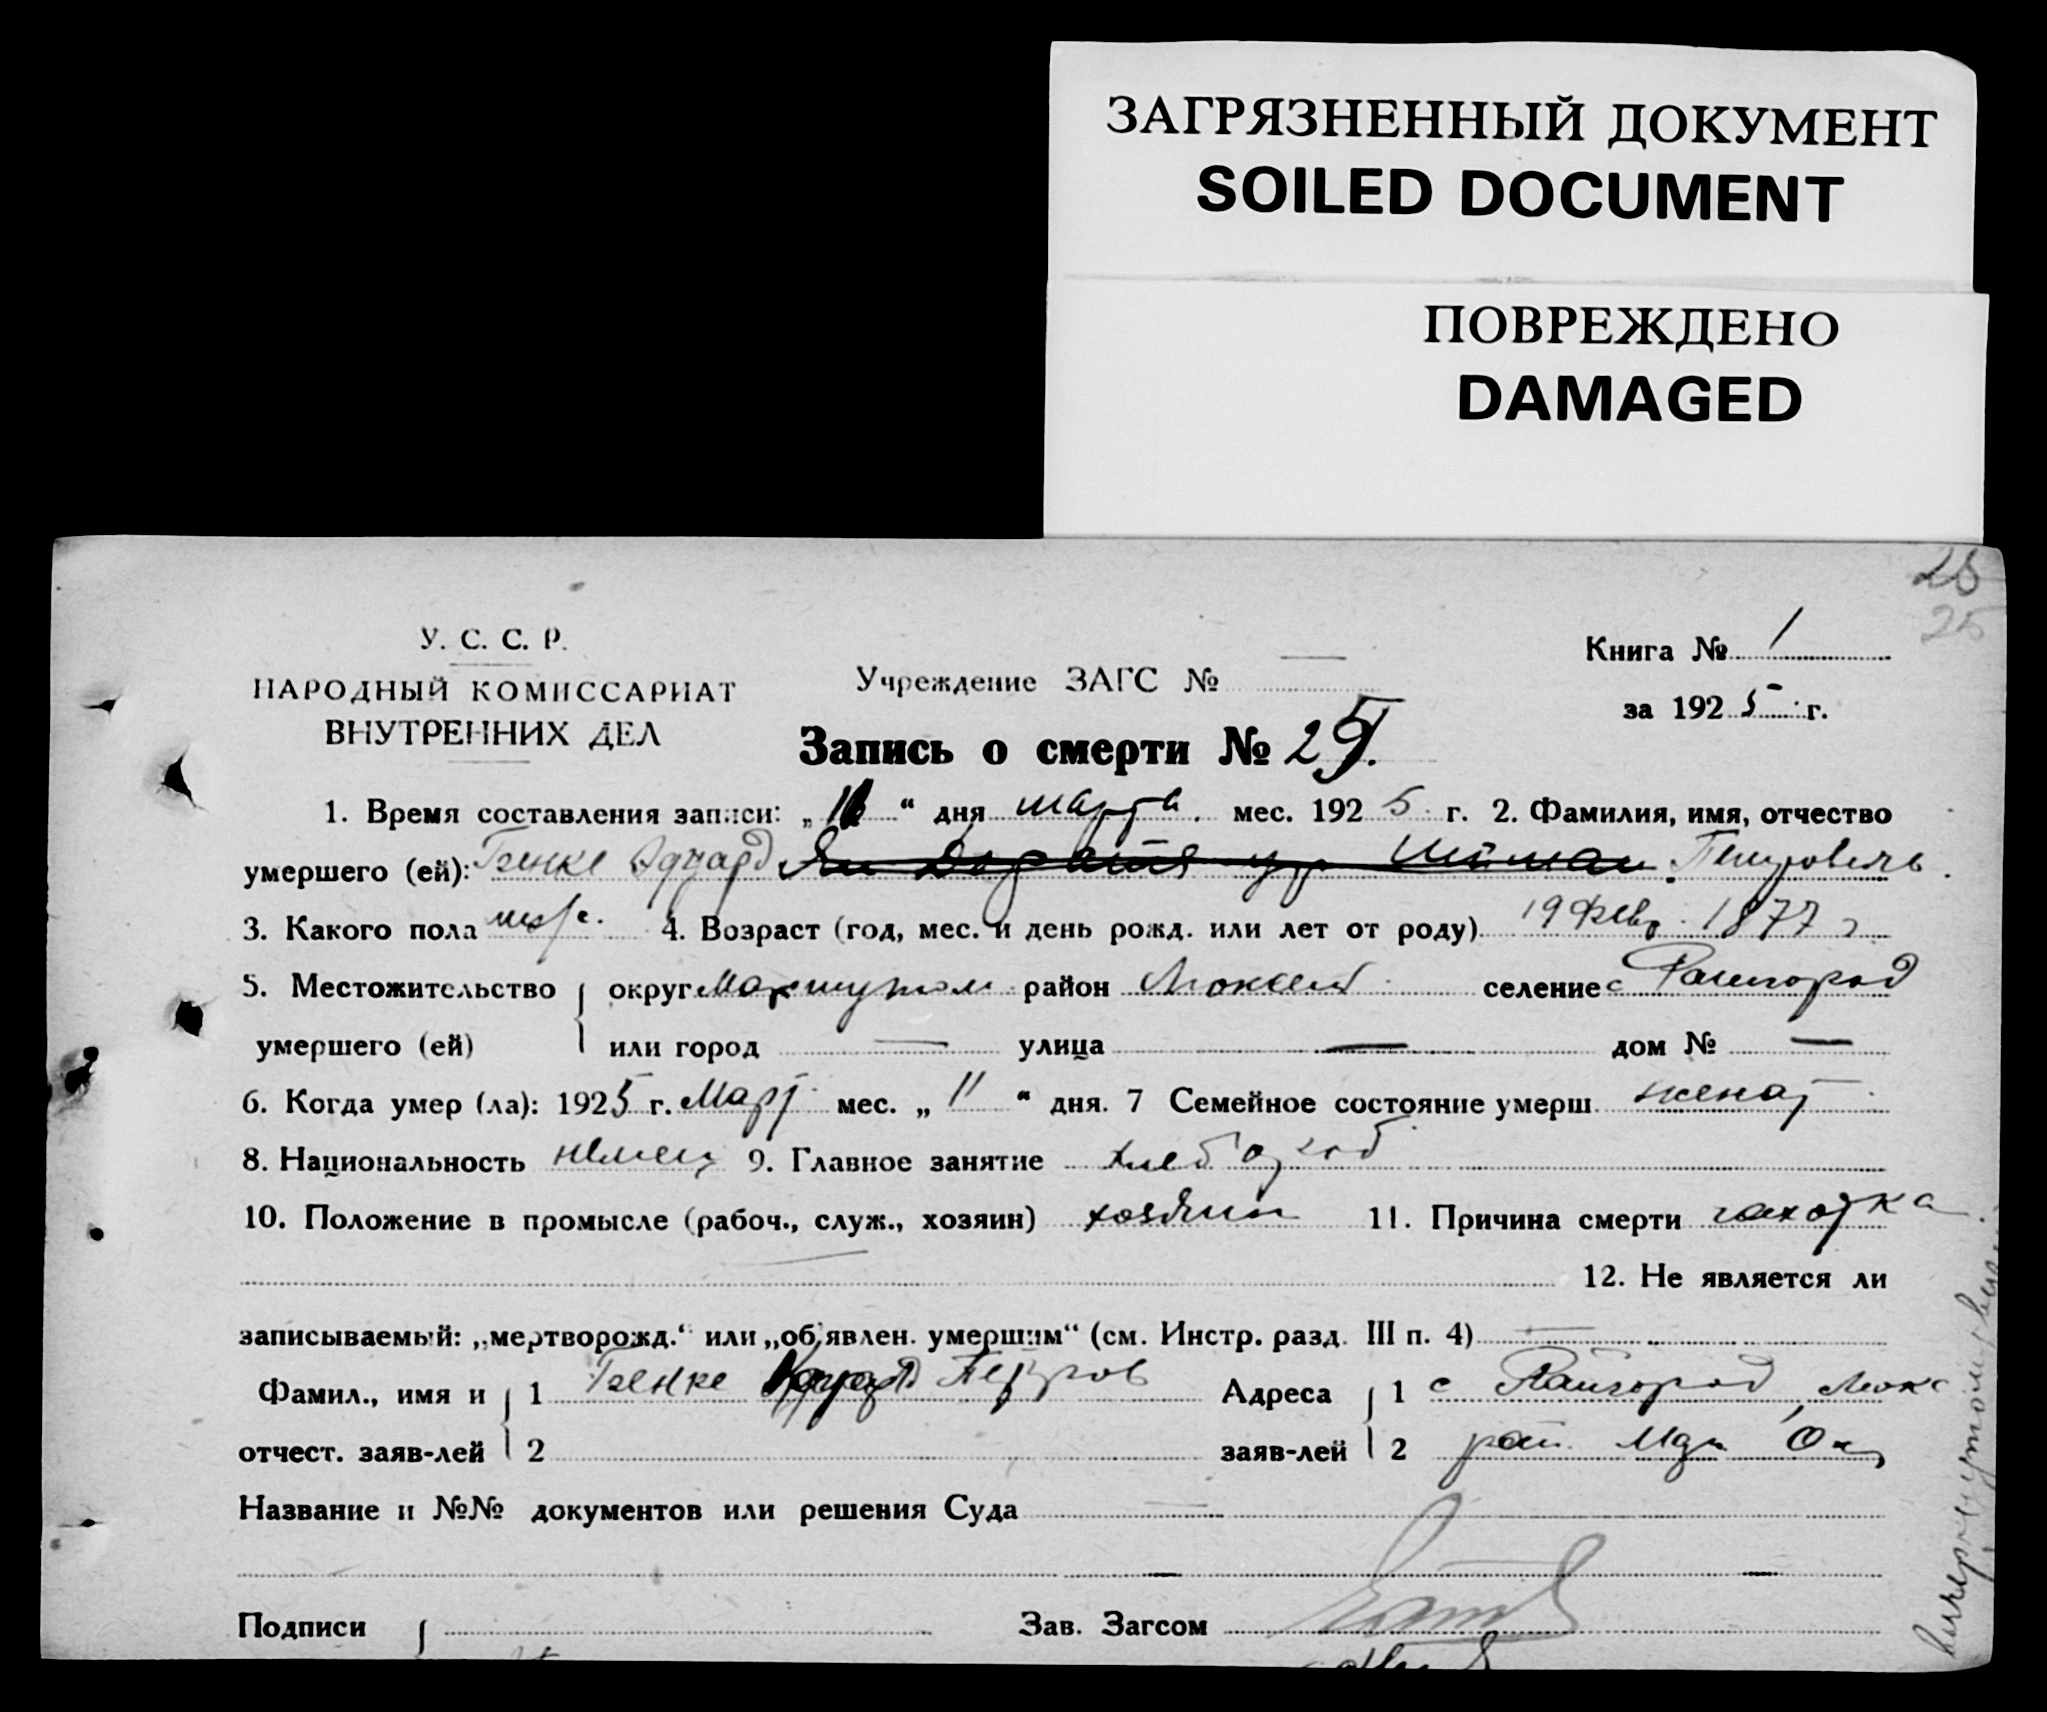 ЗАГРЯЗНЕННЫЙ ДОКУМЕНТ
SOILED DOCUMENT
ПОВРЕЖДЕНО
DAMAGED
25
25
У. С. С. Р.
НАРОДНЫЙ КОМИССАРИАТ
ВНУТРЕННИХ ДЕЛ
Учреждение ЗАГС № —
Книга № 1
за 1925 г.
Запись о смерти № 25.
1. Время составления записи: „ “ дня марта мес. 1925 г. 2. Фамилия, имя, отчество
умершего (ей): Генке Эдуард Петрович
3. Какого пола муж. 4. Возраст (год, мес. и день рожд. или лет от роду) 19 Февр. 1877 г
5. Местожительство округ район селение с Райгород
умершего (ей) или город — улица — дом № —
6. Когда умер (ла): 1925 г. Март мес. „11“ дня. 7 Семейное состояние умерш. женат
8. Национальность немец 9. Главное занятие хлебороб
10. Положение в промысле (рабоч., служ., хозяин) хозяин 11. Причина смерти чахотка
12. Не является ли
записываемый: „мертворожд.“ или „об‘явлен. умершим“ (см. Инстр. разд. III п. 4) —
Фамил., имя и 1 Генке Петров Адреса 1 с Райгород
отчест. заяв-лей 2 заяв-лей 2 рай.
Название и №№ документов или решения Суда —
Подписи Зав. Загсом